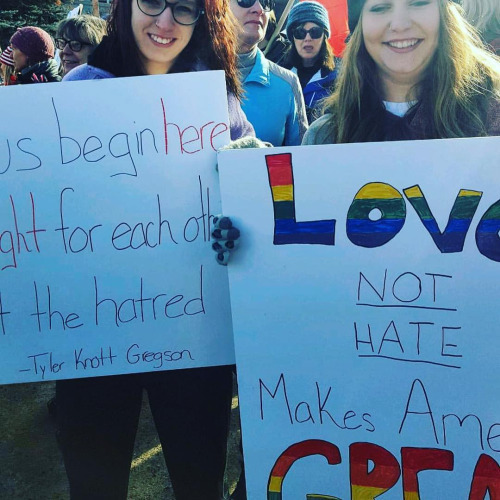 us begin here
ght for each oth
t the hatred
-Tyler Knott Gregson
LOVE
NOT
HATE
Makes Ame
GREA